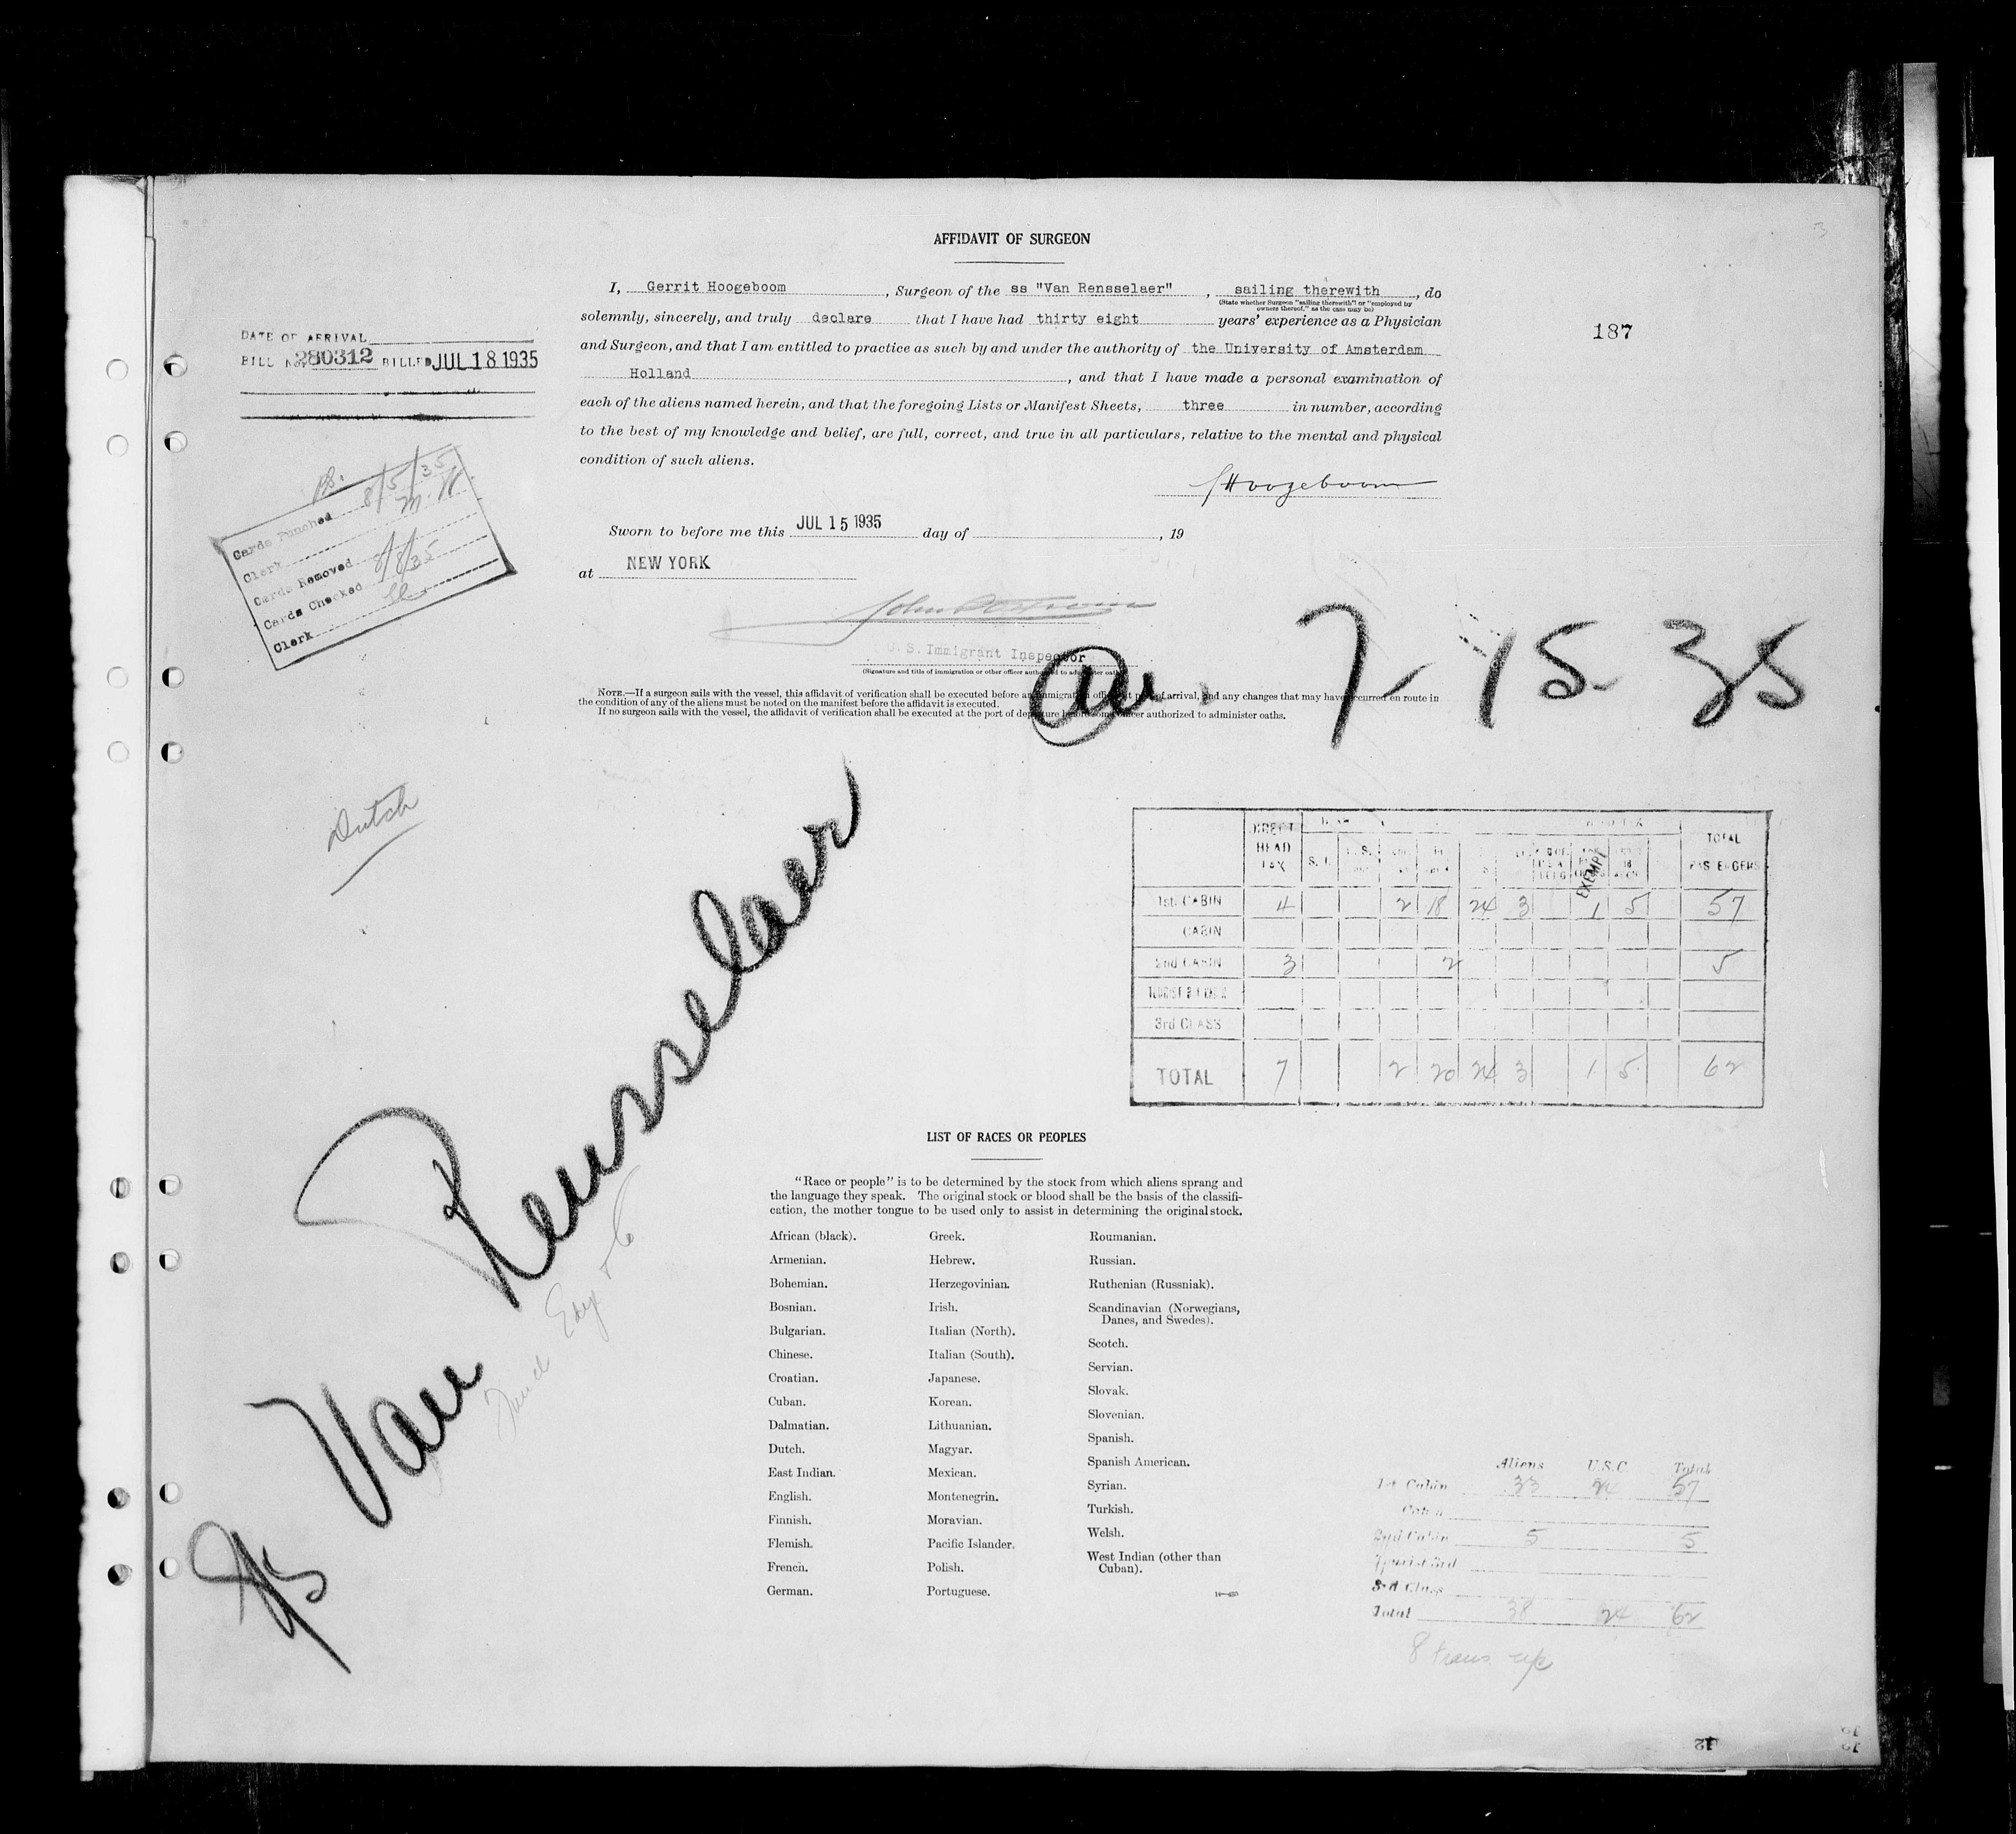 AFFIDAVIT OF SURGEON
I, Gerrit Hoogeboom, Surgeon of the ss "Van Rensselaer", sailing therewith, do
(State whether Surgeon "sailing therewith" or "employed by owners thereof," as the case may be)
solemnly, sincerely, and truly declare that I have had thirty eight years' experience as a Physician
and Surgeon, and that I am entitled to practice as such by and under the authority of the University of Amsterdam
Holland, and that I have made a personal examination of
each of the aliens named herein, and that the foregoing Lists or Manifest Sheets, three in number, according
to the best of my knowledge and belief, are full, correct, and true in all particulars, relative to the mental and physical
condition of such aliens.
Hoogeboom
Sworn to before me this JUL 15 1935 day of , 19
at NEW YORK
U. S. Immigrant Inspector
(Signature and title of immigration or other officer authorized to administer oaths)
NOTE.—If a surgeon sails with the vessel, this affidavit of verification shall be executed before an immigration officer at port of arrival, and any changes that may have occurred en route in
the condition of any of the aliens must be noted on the manifest before the affidavit is executed.
If no surgeon sails with the vessel, the affidavit of verification shall be executed at the port of departure before some officer authorized to administer oaths.
187
DATE OF ARRIVAL
BILL No. 280312 BILLED JUL 18 1935
Cards Punched 8/5/35
Clerk M.W.
Cards Removed
Cards Checked 8/8/35
Clerk
Dutch
7-15-35
SS Van Rensselaer
DIRECT HEAD TAX
S. I.
EXEMPT
TOTAL PASSENGERS
1st CABIN 4 2 18 24 3 1 5 57
CABIN
2nd CABIN 3 2 5
3rd CLASS
TOTAL 7 2 20 24 3 1 5 62
LIST OF RACES OR PEOPLES
"Race or people" is to be determined by the stock from which aliens sprang and
the language they speak. The original stock or blood shall be the basis of the classifi-
cation, the mother tongue to be used only to assist in determining the original stock.
African (black).
Armenian.
Bohemian.
Bosnian.
Bulgarian.
Chinese.
Croatian.
Cuban.
Dalmatian.
Dutch.
East Indian.
English.
Finnish.
Flemish.
French.
German.
Greek.
Hebrew.
Herzegovinian.
Irish.
Italian (North).
Italian (South).
Japanese.
Korean.
Lithuanian.
Magyar.
Mexican.
Montenegrin.
Moravian.
Pacific Islander.
Polish.
Portuguese.
Roumanian.
Russian.
Ruthenian (Russniak).
Scandinavian (Norwegians,
Danes, and Swedes).
Scotch.
Servian.
Slovak.
Slovenian.
Spanish.
Spanish American.
Syrian.
Turkish.
Welsh.
West Indian (other than
Cuban).
Aliens U.S.C. Total
1st Cabin 33 24 57
Cabin
2nd Cabin 5 5
Tourist 3rd
3rd Class
Total 38 24 62
8 trans